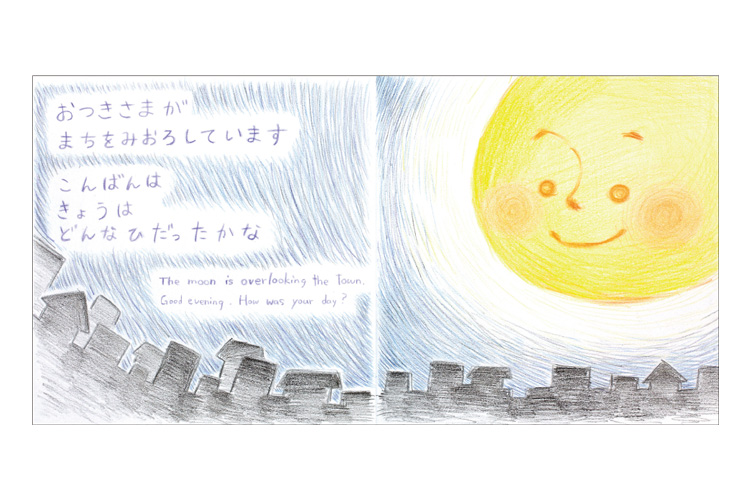 おつきさまが
まちをみおろしています
こんばんは
きょうは
どんなひだったかな
The moon is overlooking the town.
Good evening. How was your day?